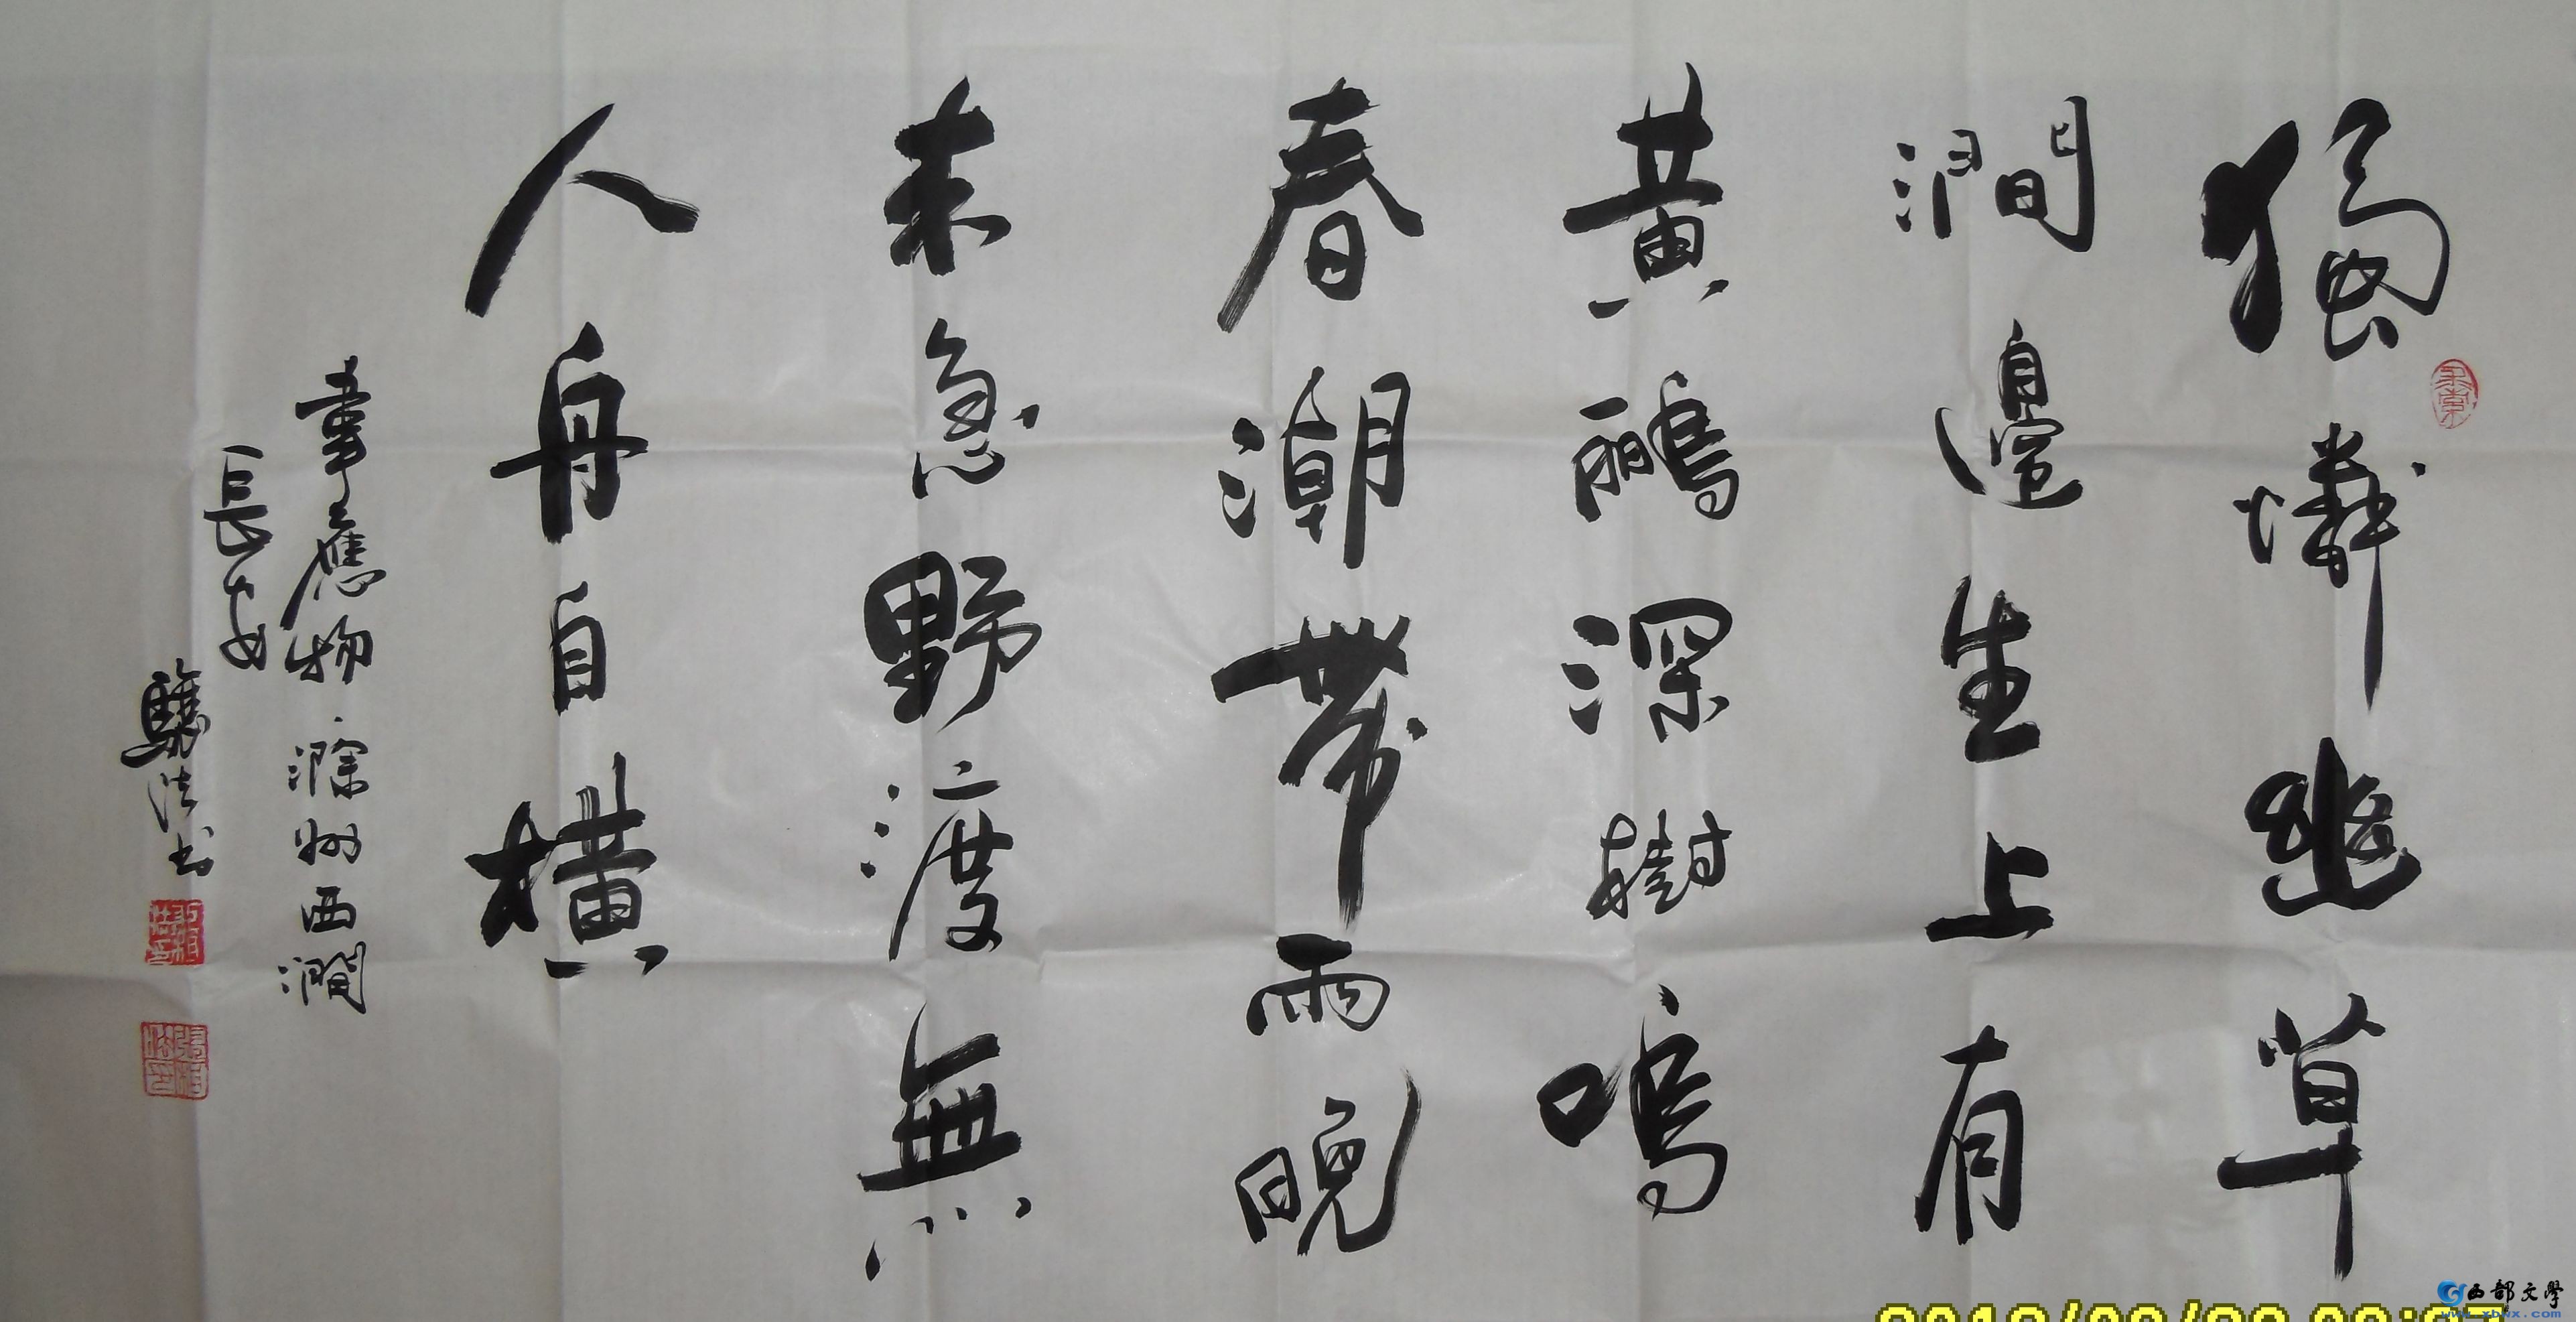 獨憐幽草
澗邊生上有
黃鸝深樹鳴
春潮帶雨晚
來急野渡無
人舟自橫
韋應物滁州西澗
長安
驥法书
西部文學
www.xbwx.com